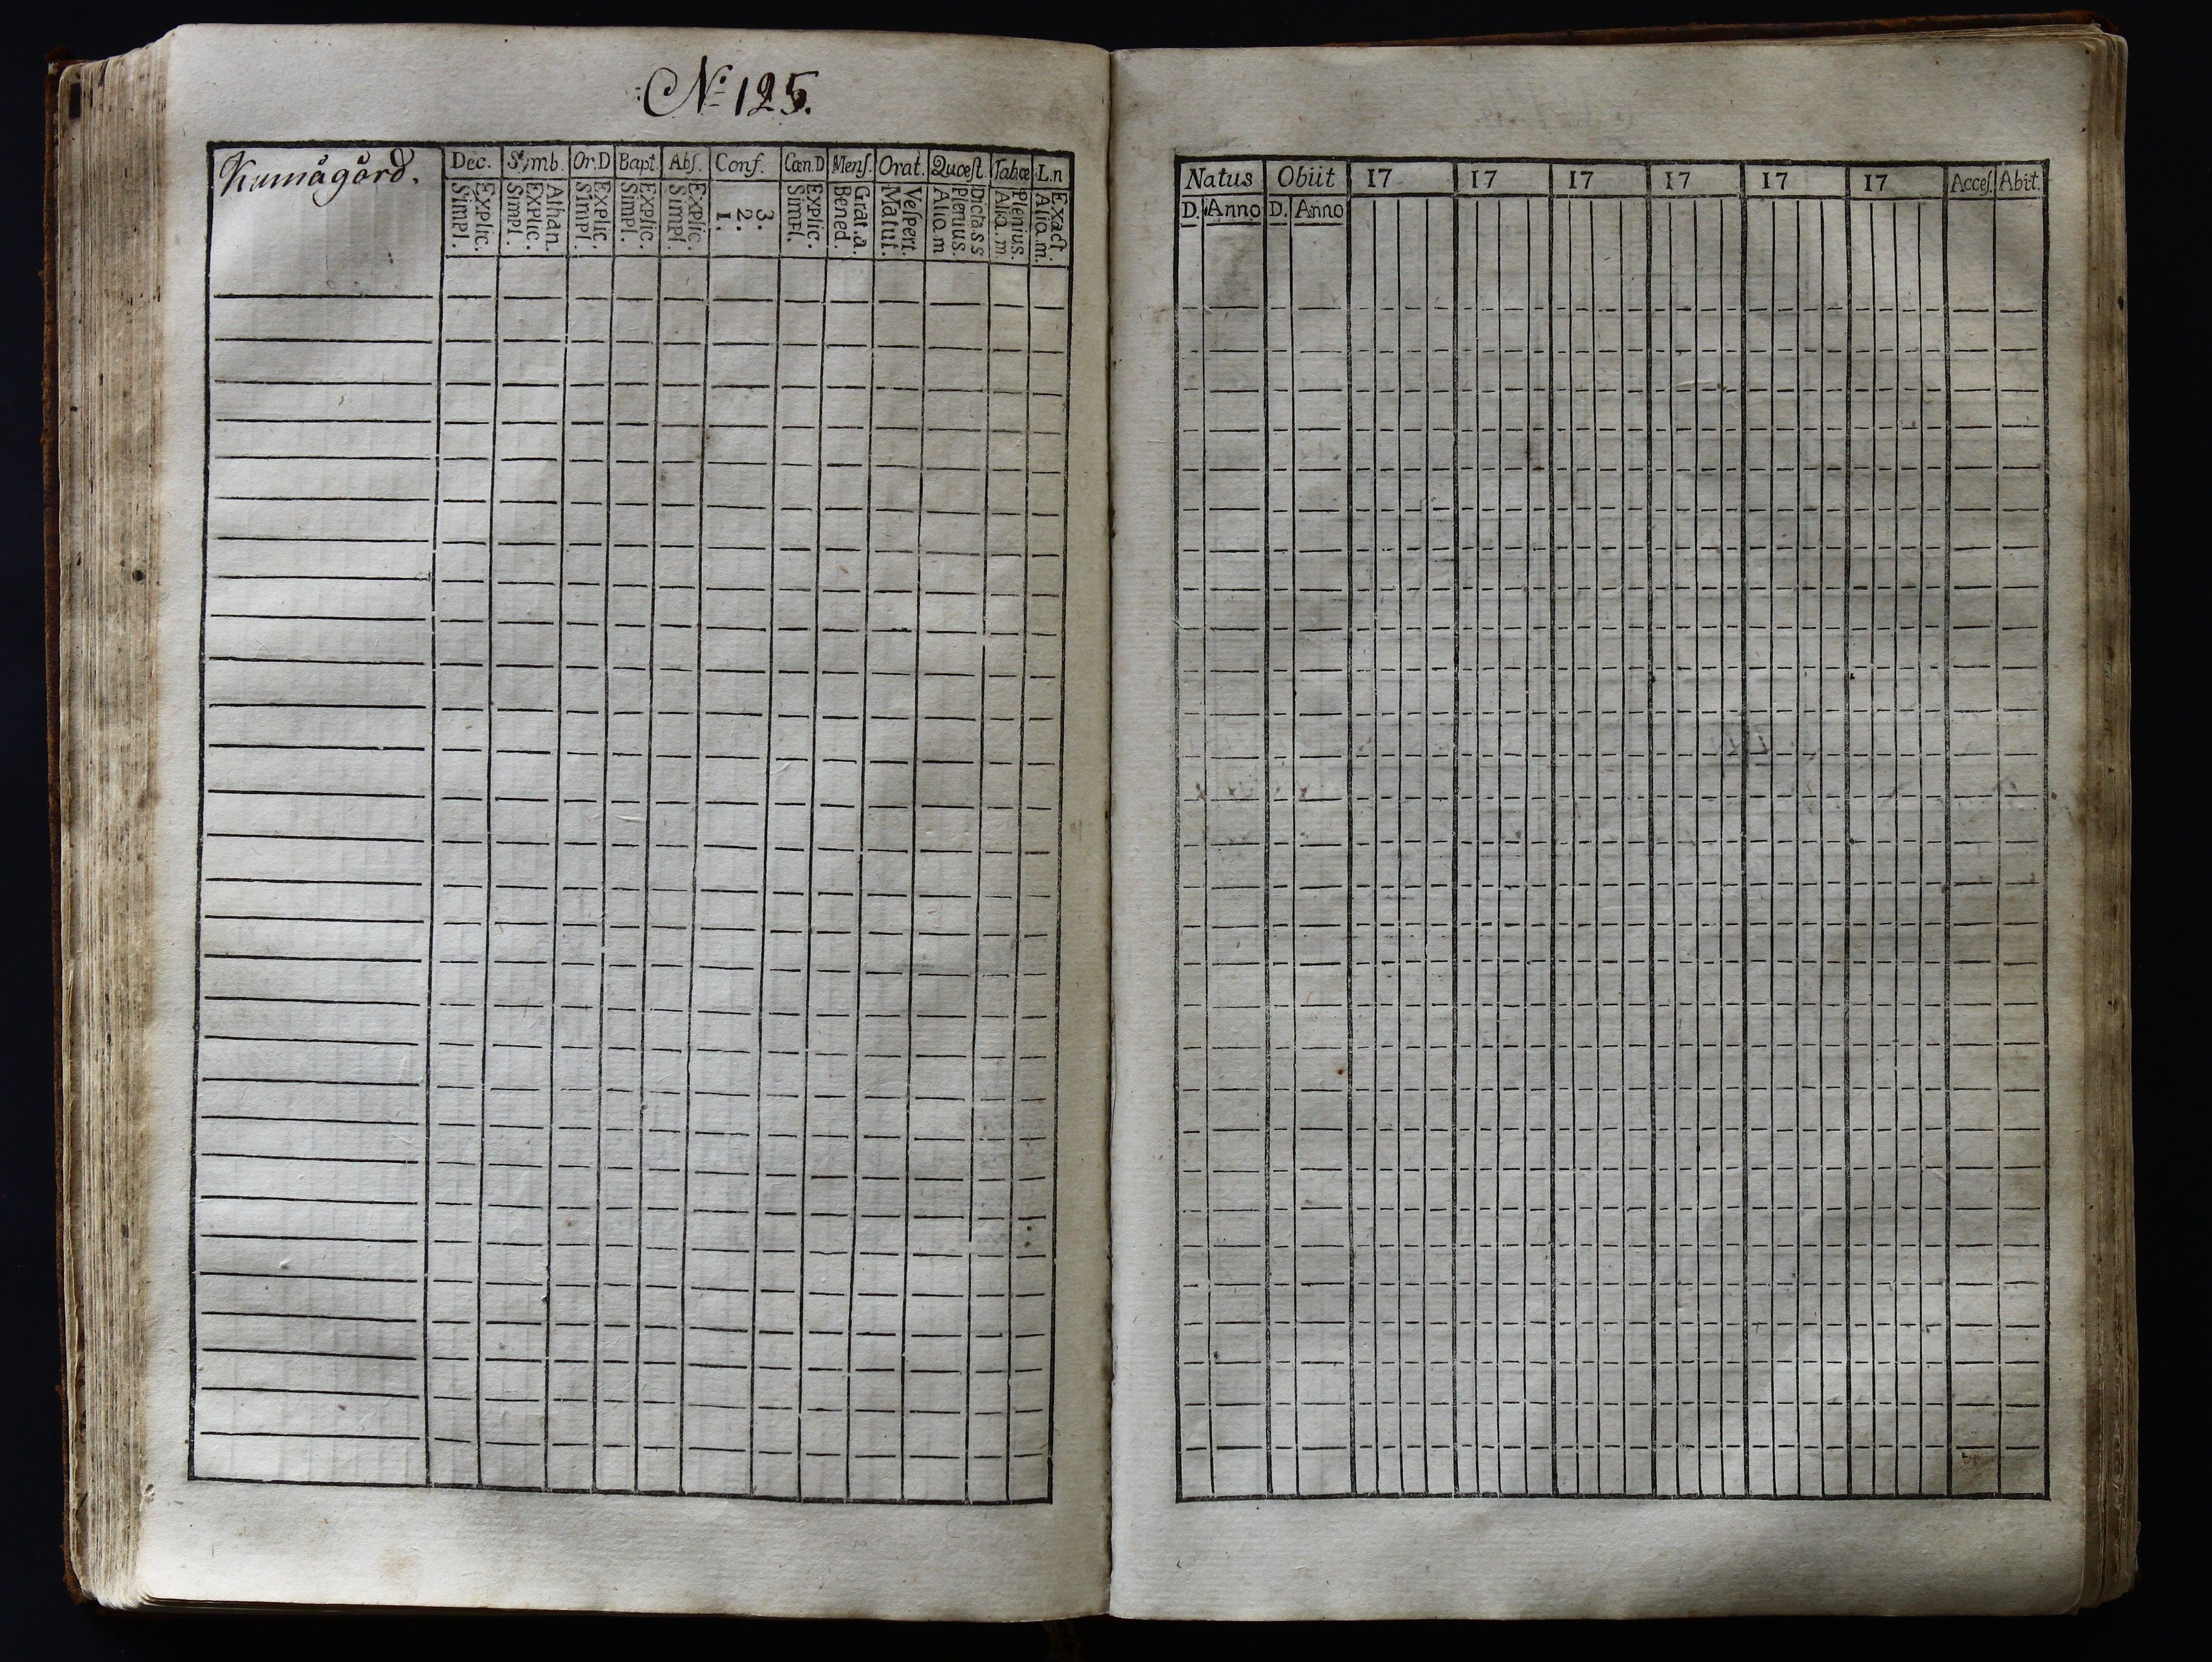 N:o 125.
Kumågård.
Dec. Symb. Or.D Bapt. Abſ. Conf. Cœn.D Menſ. Orat. Quœſt. Tabœ L.n
Explic. Simpl.
Athan. Explic. Simpl.
Explic. Simpl.
Explic. Simpl.
Explic. Simpl.
3. 2. 1.
Explic. Simpl.
Grat.a. Bened.
Veſpert. Matut.
Dicta.s s Plenius. Alia.m
Plenius. Alia.m
Exact. Alia.m.
Natus Obiit 17 17 17 17 17 17 Acceſ. Abit.
D. Anno D. Anno